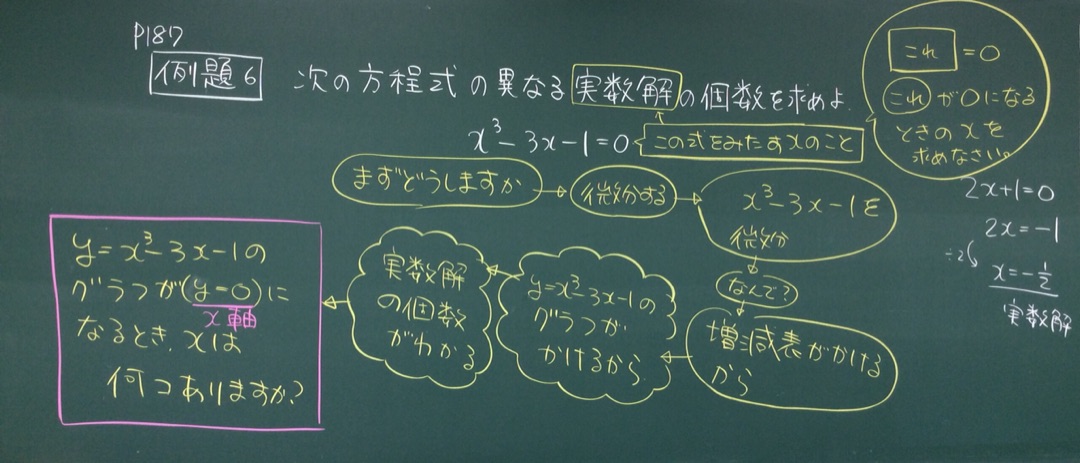 P187
例題6 次の方程式の異なる実数解の個数を求めよ.
x³-3x-1=0
この式をみたすxのこと
これ=0
これが0になる
ときのxを
求めなさい。
2x+1=0
2x=-1
÷2
x=-1/2
実数解
まずどうしますか
微分する
x³-3x-1を
微分
なんで?
増減表がかける
から
y=x³-3x-1の
グラフが
かけるから
実数解
の個数
がわかる
y=x³-3x-1の
グラフが(y=0)に
x軸
なるとき、xは
何コありますか?